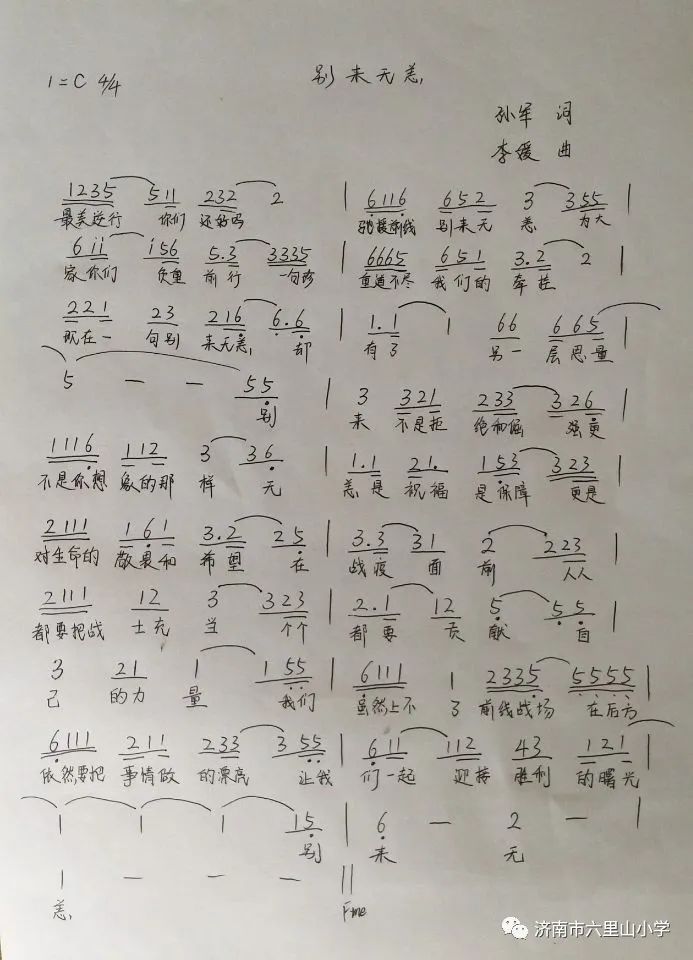 别来无恙
1=C 4/4
孙军 词
李媛 曲
1235 511 232 2 | 6116 652 3 355 |
最美逆行 你们 还好吗 驰援前线 别来无 恙 为大
6ii i56 5.3 3335 | 6665 651 3.2 2 |
家你们 负重 前行 一句珍 重道不尽 我们的 牵挂
221 23 216 6.6 | 1.1 1 66 665 |
现在一 句别 来无恙 却 有了 另一 层思量
5 — — 55 | 3 321 233 326 |
别 来 不是拒 绝和倔 强更
1116 112 3 36 | 1.1 21. 153 323 |
不是你想 象的那 样 无 恙是 祝福 是保障 更是
2111 161 3.2 25 | 3.3 31 2 223 |
对生命的 敬畏和 希望 在 战疫 面 前 人人
2111 12 3 323 | 2.1 12 5 55 |
都要把战 士充 当 个个 都要 贡 献 自
3 21 1 155 | 6111 1 2335 5555 |
己 的力 量 我们 虽然上不 了 前线战场 在后方
6111 211 233 355 | 611 112 43 121 |
依然要把 事情做 的漂亮 让我 们一起 迎接 胜利 的曙光
1 1 1 15 | 6 — 2 — |
别 来 无
1 — — — ||
恙 Fine
济南市六里山小学